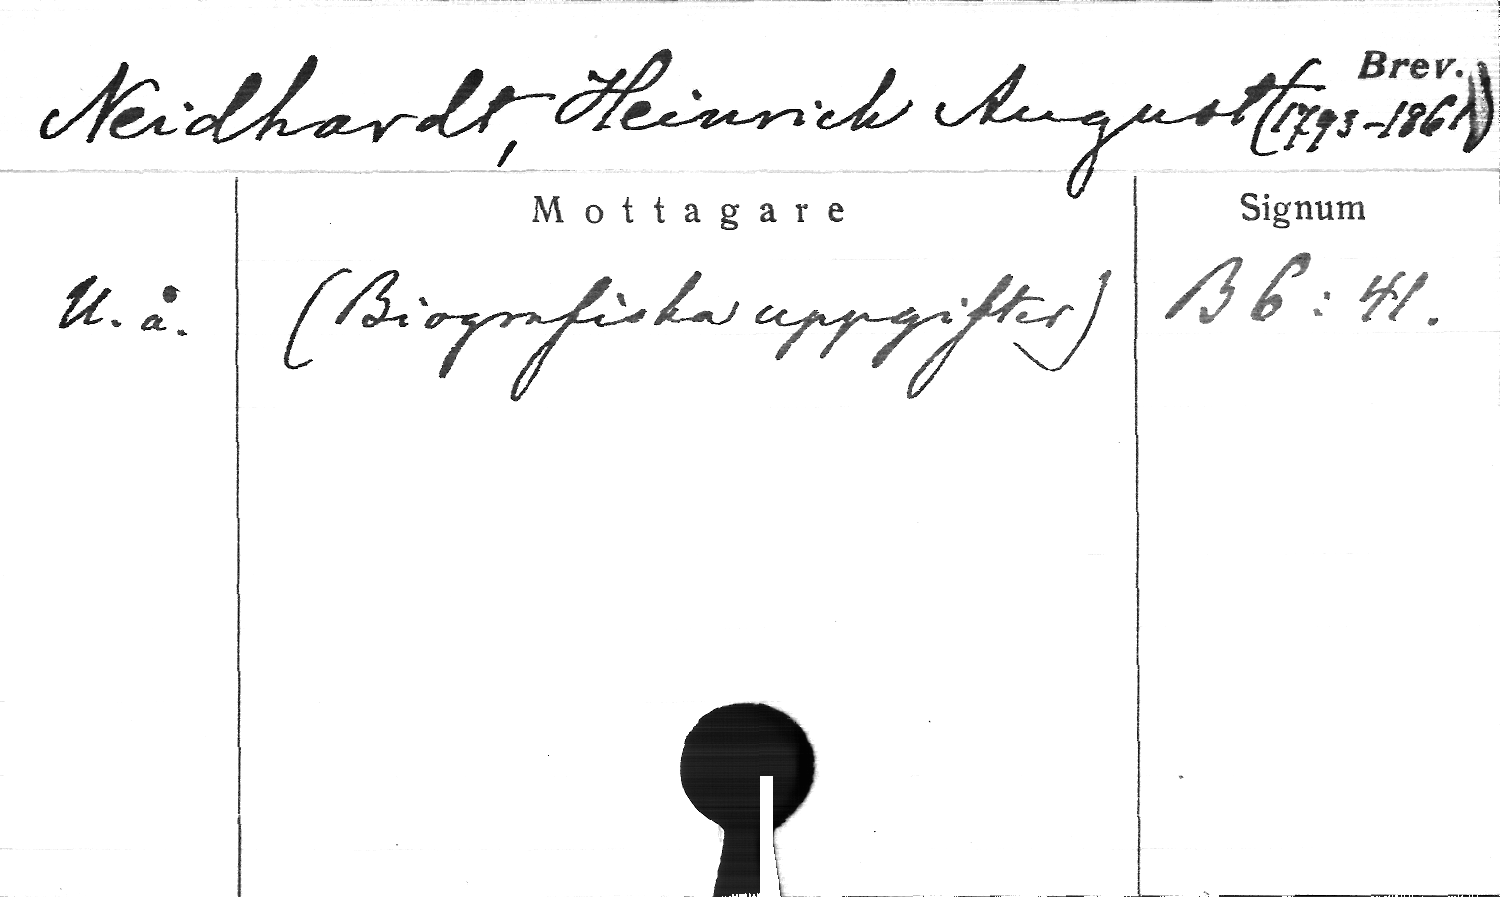 Brev.
Neidhardt, Heinrich August (1793-1861)
Mottagare Signum
U. å. (Biografiska uppgifter) B 6 : 41.